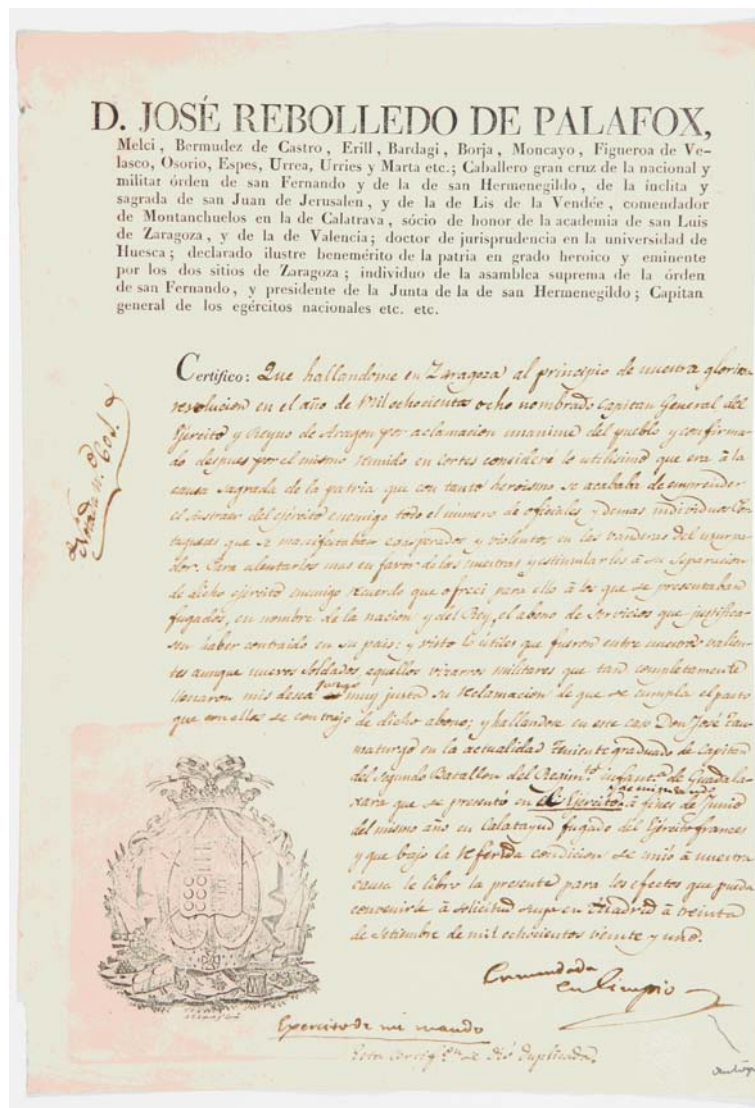 D. JOSÉ REBOLLEDO DE PALAFOX,
Melci, Bermudez de Castro, Erill, Bardagi, Borja, Moncayo, Figueroa de Ve-
lasco, Osorio, Espes, Urrea, Urries y Marta etc.; Caballero gran cruz de la nacional y
militar órden de san Fernando y de la de san Hermenegildo, de la ínclita y
sagrada de san Juan de Jerusalen, y de la de Lis de la Vendée, comendador
de Montanchuelos en la de Calatrava, sócio de honor de la academia de san Luis
de Zaragoza, y de la de Valencia; doctor de jurisprudencia en la universidad de
Huesca; declarado ilustre benemérito de la patria en grado heroico y eminente
por los dos sitios de Zaragoza; individuo de la asamblea suprema de la órden
de san Fernando, y presidente de la Junta de la de san Hermenegildo; Capitan
general de los egércitos nacionales etc. etc.
Certifico: Que hallandome en Zaragoza al principio de nuestra gloriosa
revolucion en el año de Mil ochocientos ocho nombrado Capitan General del
Ejército y Reyno de Aragon por aclamacion unanime del pueblo y confirma-
do despues por el mismo reunido en Cortes consideré lo utilisimo que era á la
causa sagrada de la patria que con tanto heroismo se acababa de emprender
el sustraer del ejército enemigo todo el número de oficiales y demas individuos
que se manifestaban y violentos en las banderas del usurpa-
dor. Para alentarlos mas en favor de las nuestras y estimularles á su separacion
de dicho ejército enemigo recuerdo que ofrecí para ello á los que se presentaban
fugados, en nombre de la nacion y del Rey, el abono de servicios que justifica-
sen haber contraido en su pais: y visto lo útiles que fueron entre nuestros valien-
tes aunque nuevos soldados, aquellos vizarros militares que tan completamente
llenaron mis deseos juzgo muy justa su reclamacion de que se cumpla el pacto
que con ellos se contrajo de dicho abono; y hallandose en este caso Don José Tau-
maturgo en la actualidad Teniente graduado de Capitan
del segundo Batallon del Regim.to infant.a de Guadala-
xara que se presentó en el Ejército de mi mando á fines de Junio
del mismo año en Calatayud fugado del Ejército frances
y que bajo la referida condicion se unió á nuestra
causa le libro la presente para los efectos que pueda
convenirle á solicitud suya en Madrid á treinta
de Setiembre de mil ochocientos veinte y uno.
Enmendada
en limpio
Egercito de mi mando